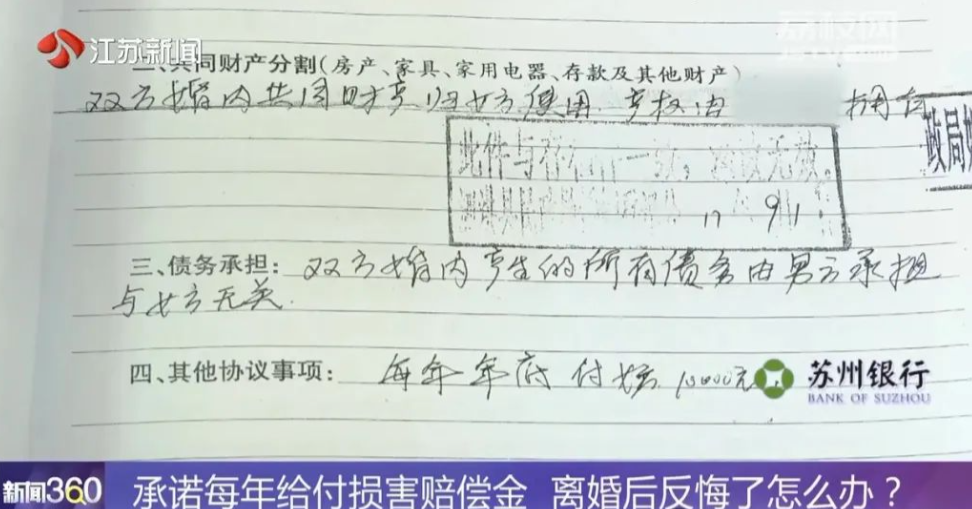 江苏新闻
荔枝网
二、共同财产分割（房产、家具、家用电器、存款及其他财产）
双方婚内共同财产归女方使用 产权由 拥有
此件与存 一致，涂改无效。
政局婚
17 9 1
三、债务承担：双方婚内产生的所有债务由男方承担
与女方无关.
四、其他协议事项：每年年底付 10000元.
苏州银行
BANK OF SUZHOU
新闻360
承诺每年给付损害赔偿金 离婚后反悔了怎么办？